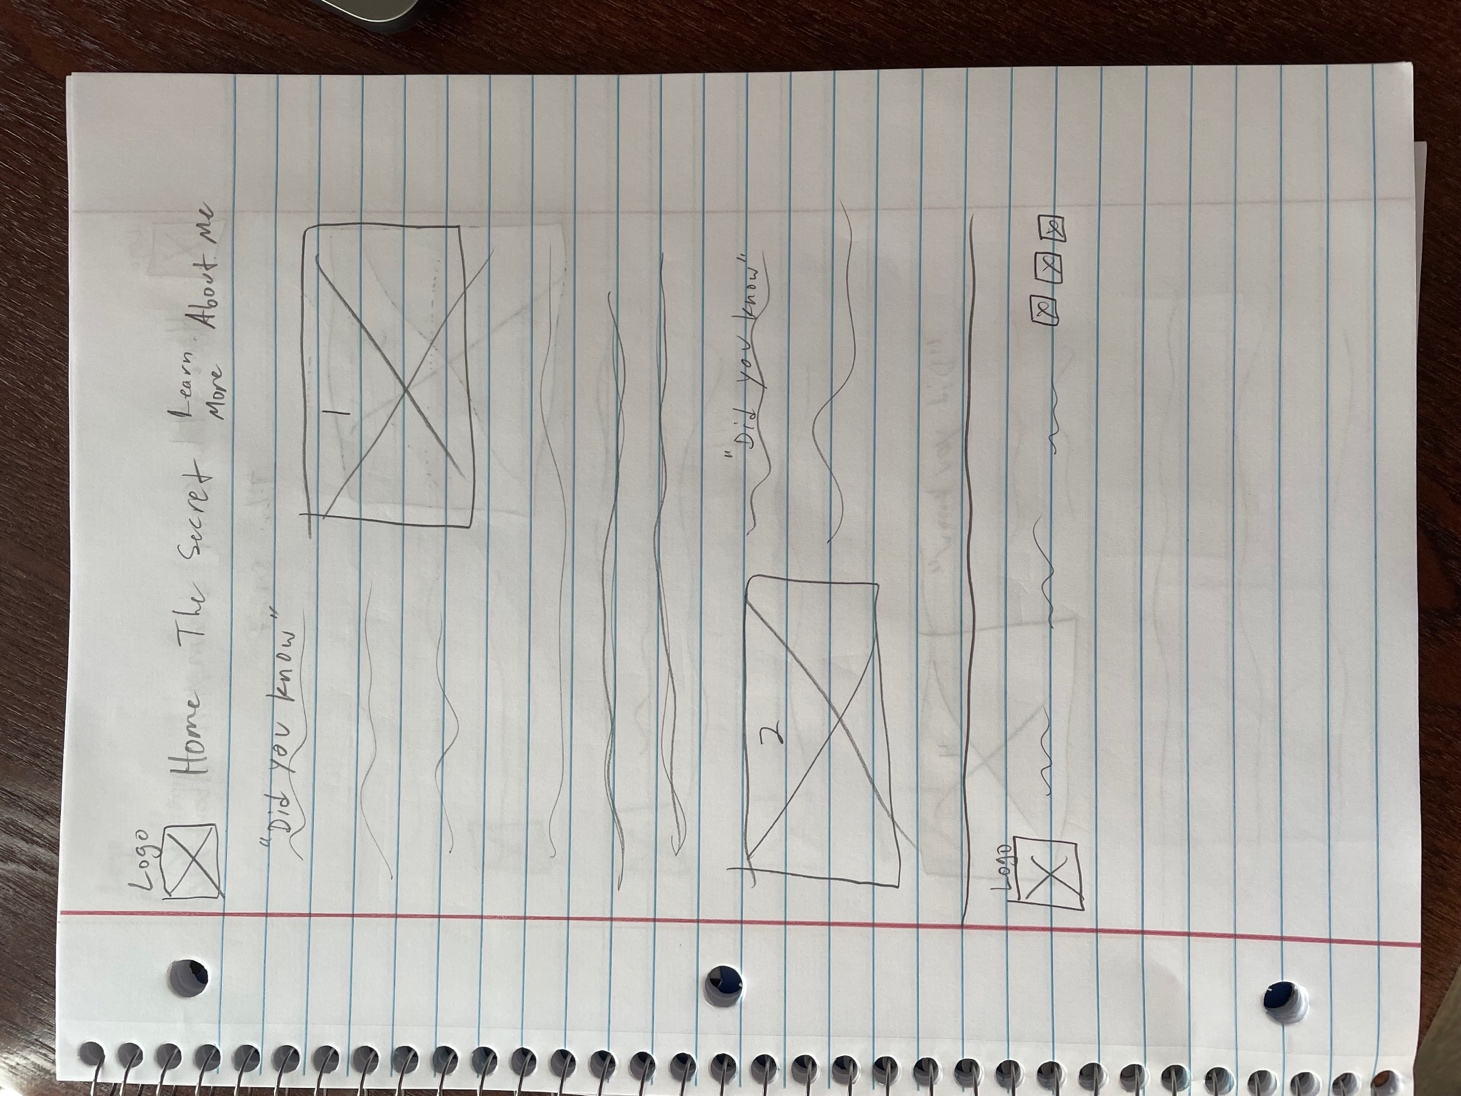 Logo
Home The Secret Learn More About Me
"Did you know"
1
2
"Did you know"
Logo